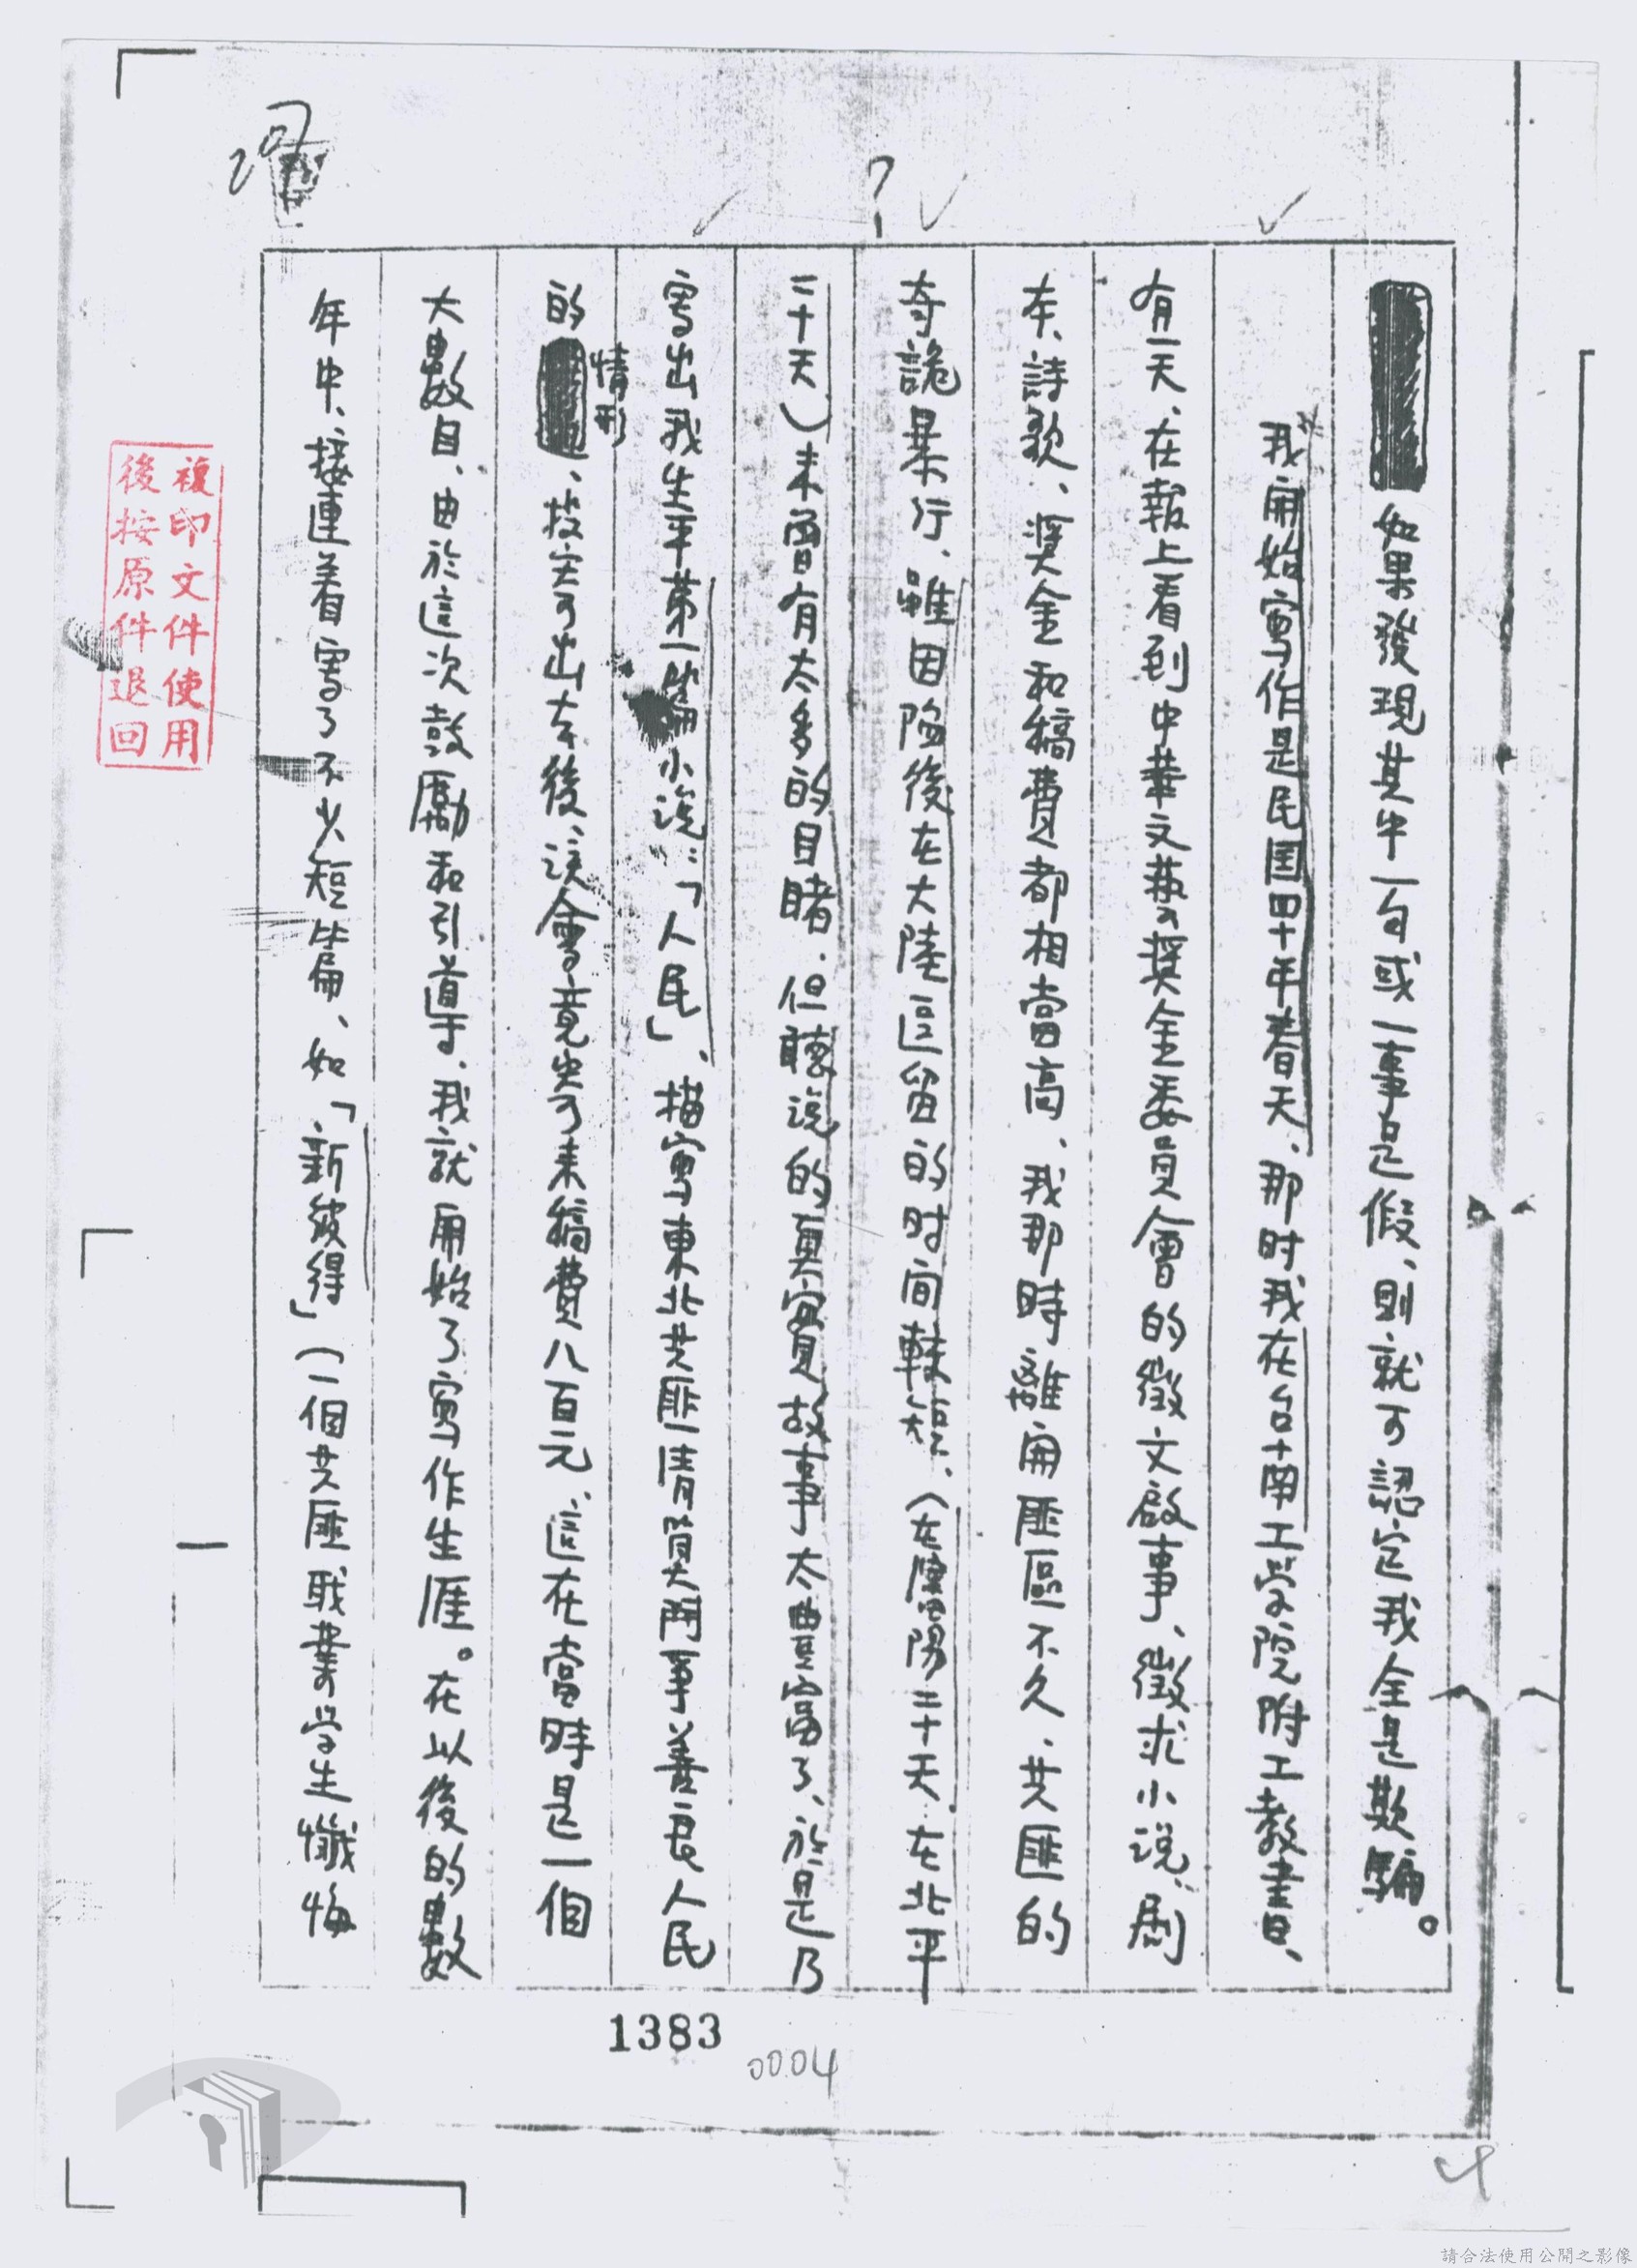 如果發現其中一句或一事是假、則就可認定我全是欺騙。
我開始寫作是民国四十年春天、那时我在台南工学院附工教書、
有一天、在報上看到中華文藝獎金委員會的徵文啟事、徵求小說、劇
本、詩歌、獎金和稿費都相當高、我那時離開匪區不久、共匪的
奇詭暴行、雖因陷後在大陸區留的时间較短、（在瀋陽二十天、在北平
二十天）未曾有太多的目睹、但聽說的真實故事太豐富了、於是乃
寫出我生平第一篇小說：「人民」、描寫東北共匪清算鬥爭善良人民
的情形、投寄出去後、該會竟寄來稿費八百元、這在當時是一個
大數目、由於這次鼓勵和引導、我就開始了寫作生涯。在以後的數
年中、接連着寫了不少短篇、如「新彼得」（一個共匪職業学生懺悔
複印文件使用
後按原件退回
1383
0004
4
請合法使用公開之影像